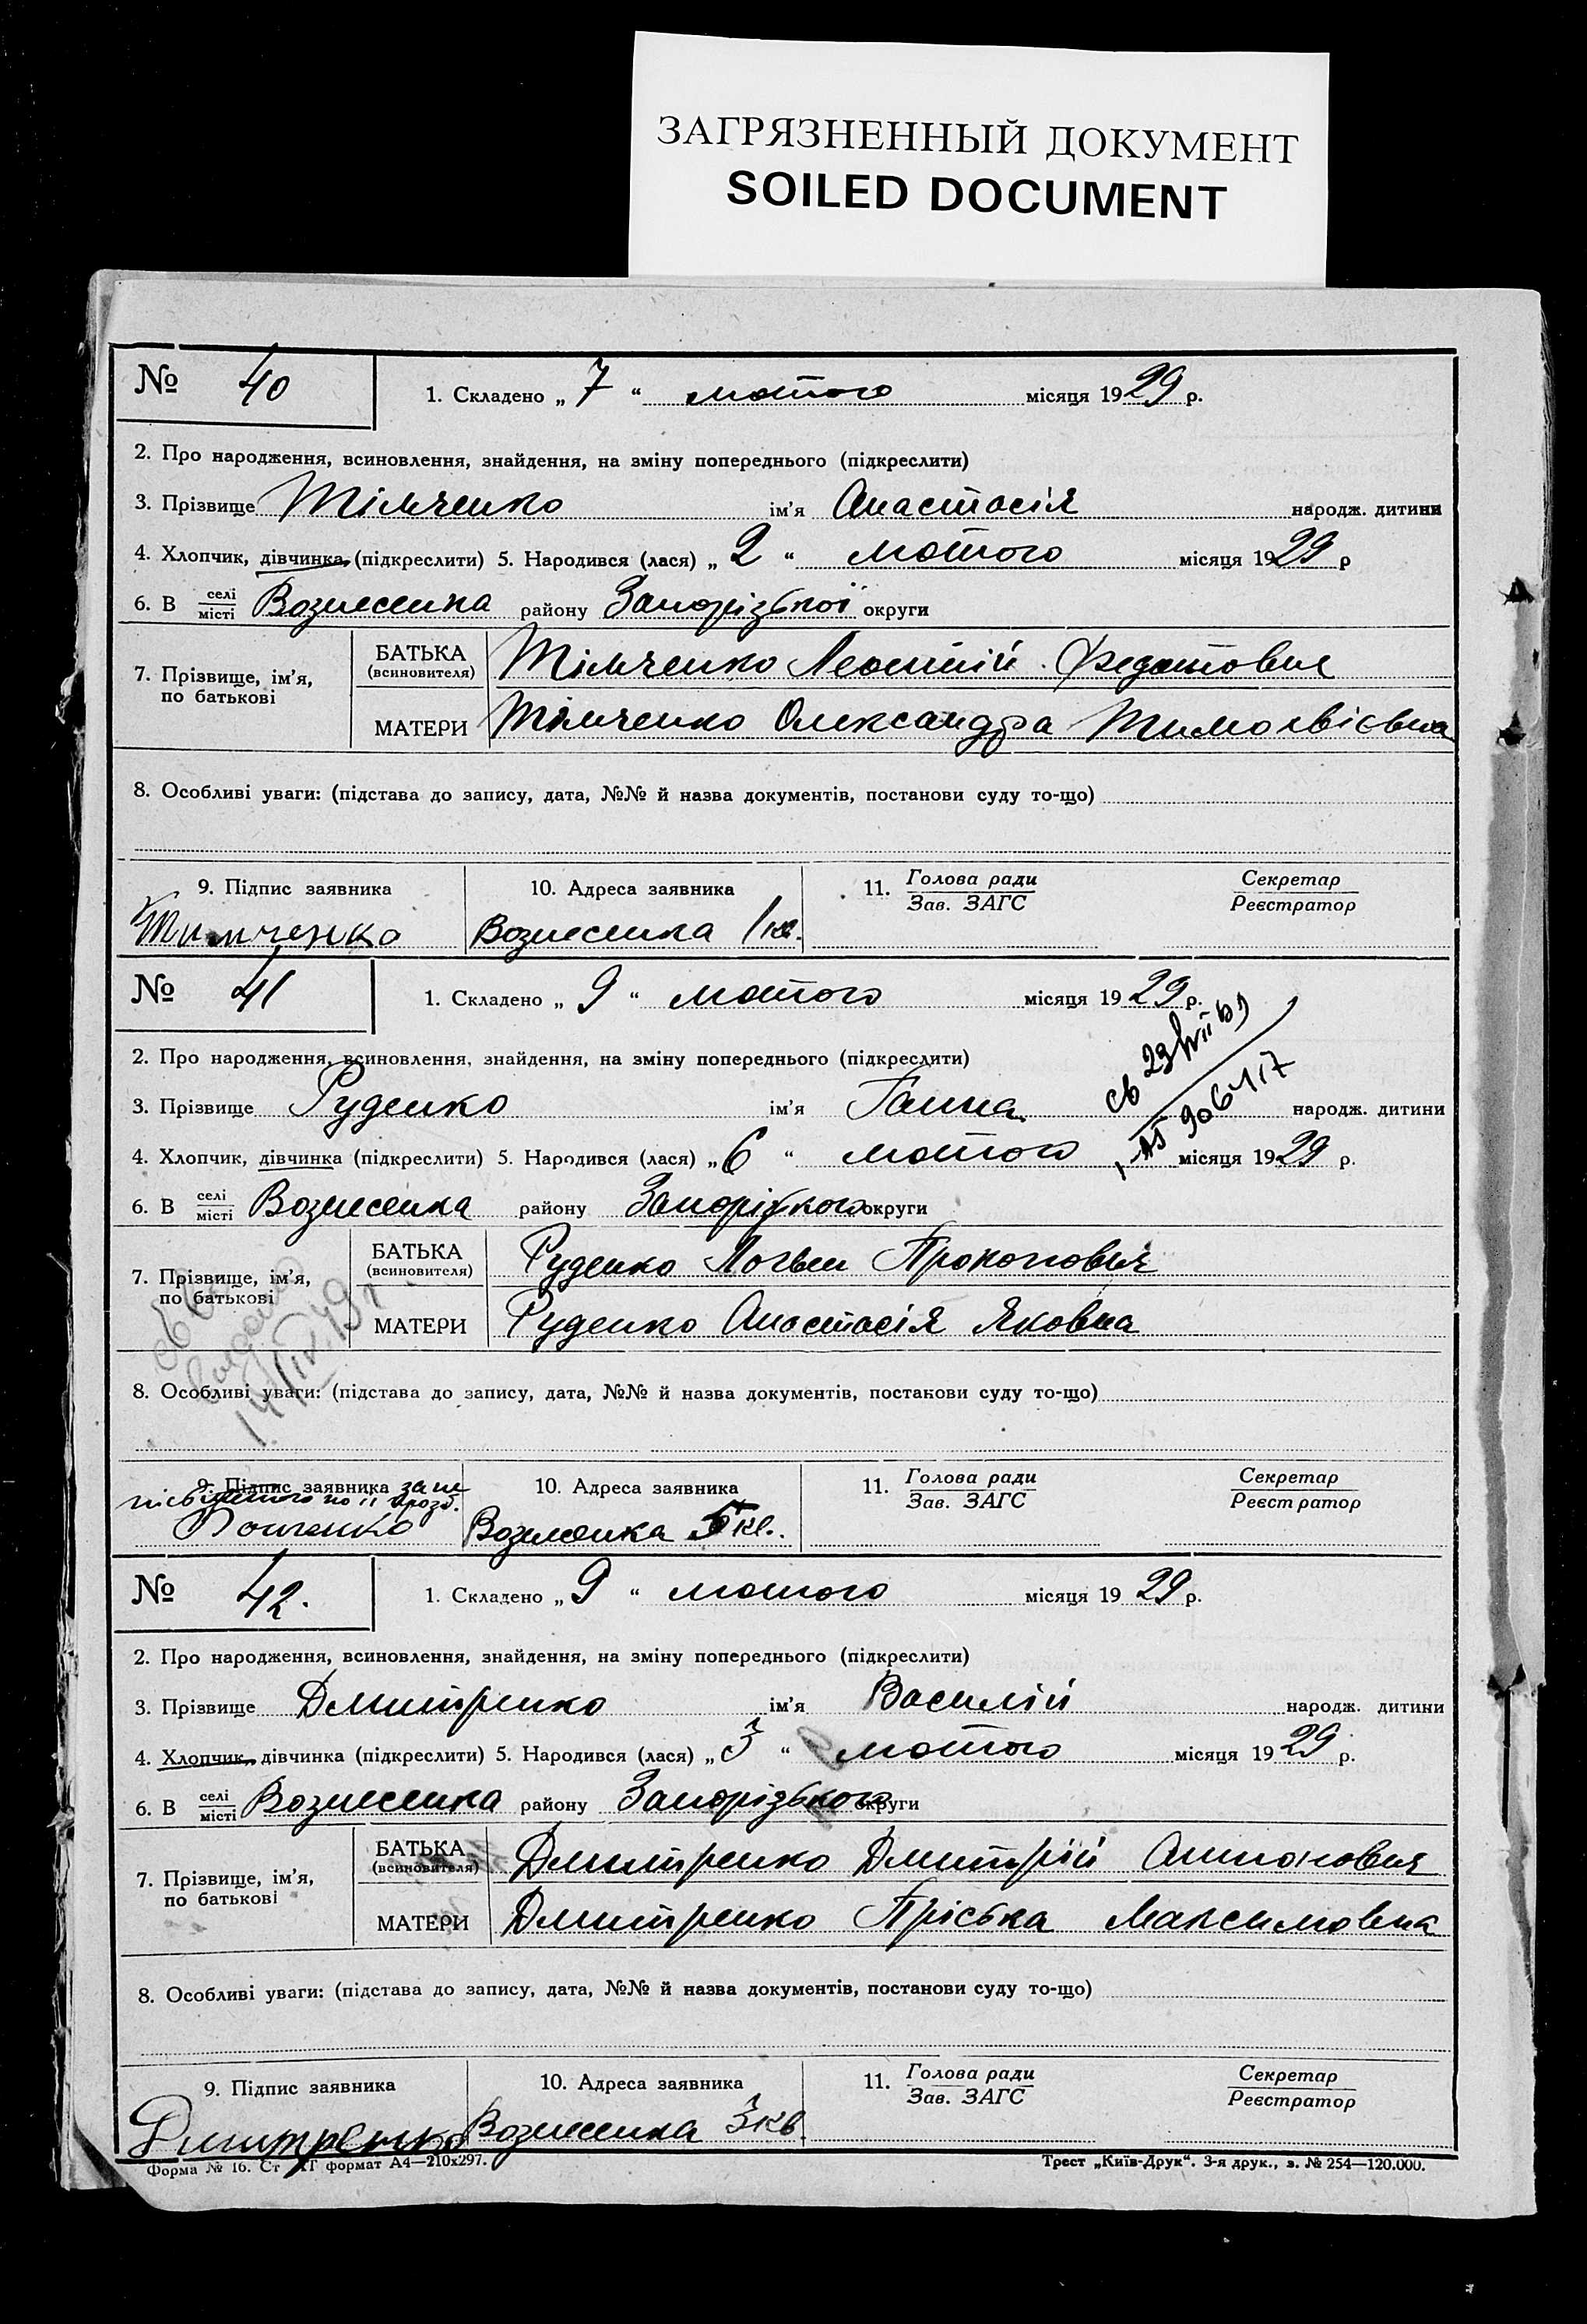 ЗАГРЯЗНЕННЫЙ ДОКУМЕНТ
SOILED DOCUMENT
№ 40 1. Складено „ 7 “ лютого місяця 1929 р.
2. Про народження, всиновлення, знайдення, на зміну попереднього (підкреслити)
3. Прізвище Тімченко ім'я Анастасія народж. дитини
4. Хлопчик, дівчинка (підкреслити) 5. Народився (лася) „ 2 “ лютого місяця 1929 р
6. В селі місті Вознесенка району Запорізької округи
7. Прізвище, ім'я, по батькові
БАТЬКА (всиновителя) Тімченко Леонтій Федотович
МАТЕРИ Тімченко Олександра
8. Особливі уваги: (підстава до запису, дата, №№ й назва документів, постанови суду то-що)
9. Підпис заявника 10. Адреса заявника 11. Голова ради Зав. ЗАГС Секретар Реєстратор
Тимченко Вознесенка 1 кв.
№ 41 1. Складено „ 9 “ лютого місяця 1929 р.
2. Про народження, всиновлення, знайдення, на зміну попереднього (підкреслити)
3. Прізвище Руденко ім'я Ганна народж. дитини
4. Хлопчик, дівчинка (підкреслити) 5. Народився (лася) „ 6 “ лютого місяця 1929 р.
6. В селі місті Вознесенка району Запорізького округи
7. Прізвище, ім'я, по батькові
БАТЬКА (всиновителя) Руденко Логвин Прокопович
МАТЕРИ Руденко Анастасія Яковна
8. Особливі уваги: (підстава до запису, дата, №№ й назва документів, постанови суду то-що)
9. Підпис заявника 10. Адреса заявника 11. Голова ради Зав. ЗАГС Секретар Реєстратор
Вознесенка 5 кв.
№ 42. 1. Складено „ 9 “ лютого місяця 1929 р.
2. Про народження, всиновлення, знайдення, на зміну попереднього (підкреслити)
3. Прізвище Дмитренко ім'я Василій народж. дитини
4. Хлопчик, дівчинка (підкреслити) 5. Народився (лася) „ 3 “ лютого місяця 1929 р.
6. В селі місті Вознесенка району Запорізького округи
7. Прізвище, ім'я, по батькові
БАТЬКА (всиновителя) Дмитренко Дмитрій Антонович
МАТЕРИ Дмитренко Пріська Максимовна
8. Особливі уваги: (підстава до запису, дата, №№ й назва документів, постанови суду то-що)
9. Підпис заявника 10. Адреса заявника 11. Голова ради Зав. ЗАГС Секретар Реєстратор
Дмитренко Вознесенка 3 кв.
Форма № 16. Ст формат А4—210x297. Трест „Київ-Друк“. 3-я друк., з. № 254—120.000.